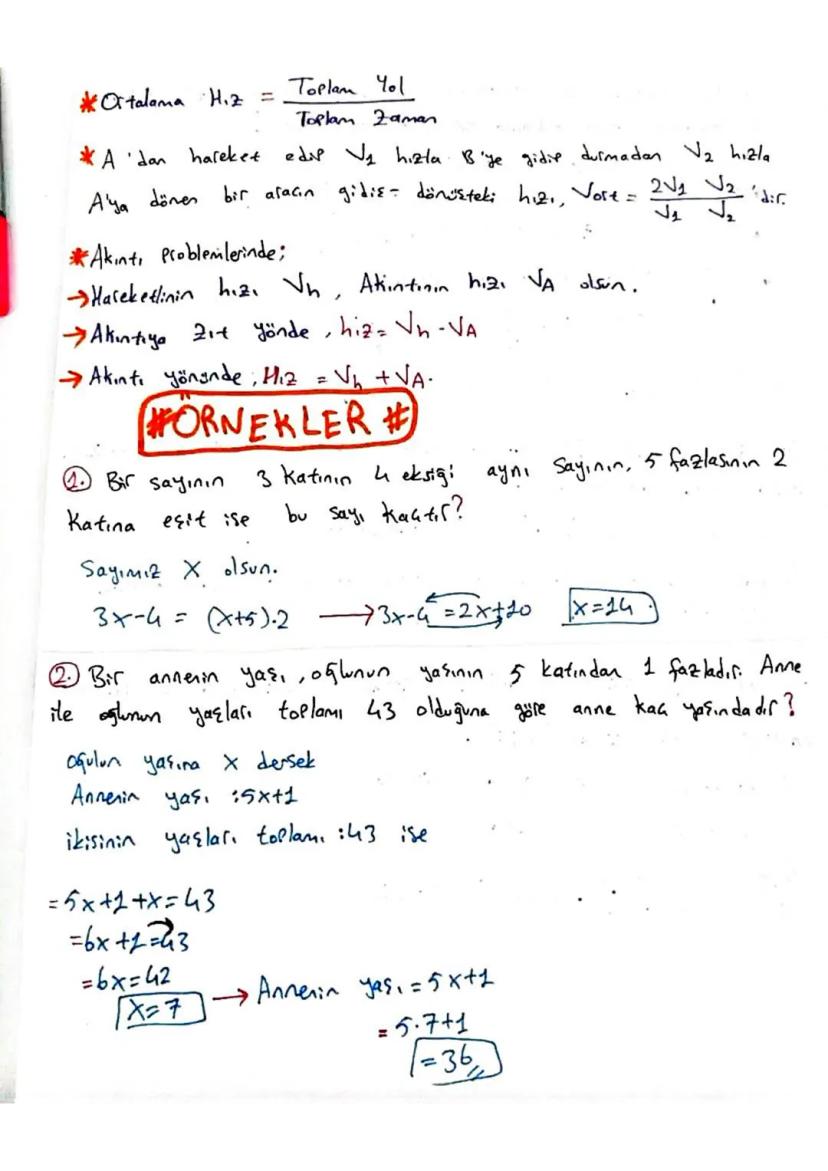 *Ortalama Hız = Toplam Yol / Toplam Zaman
*A'dan hareket edip V₁ hızla B'ye gidip durmadan V₂ hızla
A'ya dönen bir aracın gidiş-dönüşteki hızı, Vort = 2V₁ V₂ / V₁ V₂ 'dir.
*Akıntı Problemlerinde;
→Hareketlinin hızı Vh, Akıntının hızı VA olsun.
→Akıntıya zıt yönde, hız = Vh - VA
→Akıntı yönünde; Hız = Vh + VA.
#ÖRNEKLER#
1. Bir sayının 3 katının 4 eksiği aynı sayının, 5 fazlasının 2
katına eşit ise bu sayı kaçtır?
Sayımız X olsun.
3x-4 = (x+5).2 → 3x-4 = 2x+10 x=14
2. Bir annenin yaşı, oğlunun yaşının 5 katından 1 fazladır. Anne
ile oğlunun yaşları toplamı 43 olduğuna göre anne kaç yaşındadır?
oğulun yaşına x dersek
Annenin yaşı :5x+1
ikisinin yaşları toplamı :43 ise
=5x+1+x=43
=6x+1=43
=6x=42
x=7 → Annenin yaşı = 5x+1
= 5.7+1
=36